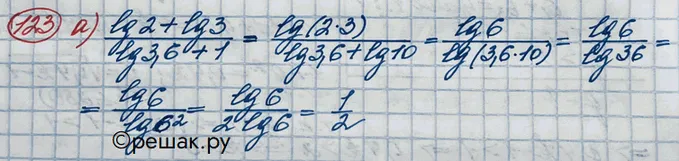 123 а) (lg2+lg3)/(lg3,6+1) = lg(2·3)/(lg3,6+lg10) = lg6/lg(3,6·10) = lg6/lg36 =
= lg6/lg6² = lg6/(2lg6) = 1/2
©решак.ру